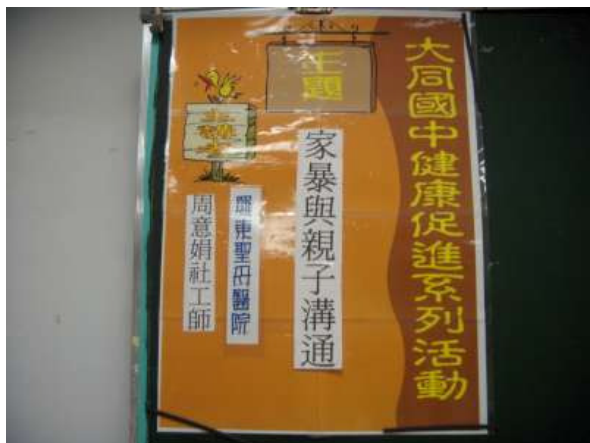 大同國中健康促進系列活動
主題
家暴與親子溝通
主講者
羅東聖母醫院
周意娟社工師